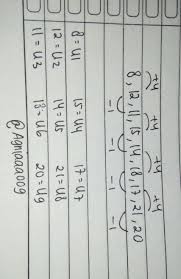 +4 +4 +4 +4
8, 12, 11, 15, 14, 18, 17, 21, 20
-1 -1 -1 -1
8 = U1 15 = U4 17 = U7
12 = U2 14 = U5 21 = U8
11 = U3 18 = U6 20 = U9